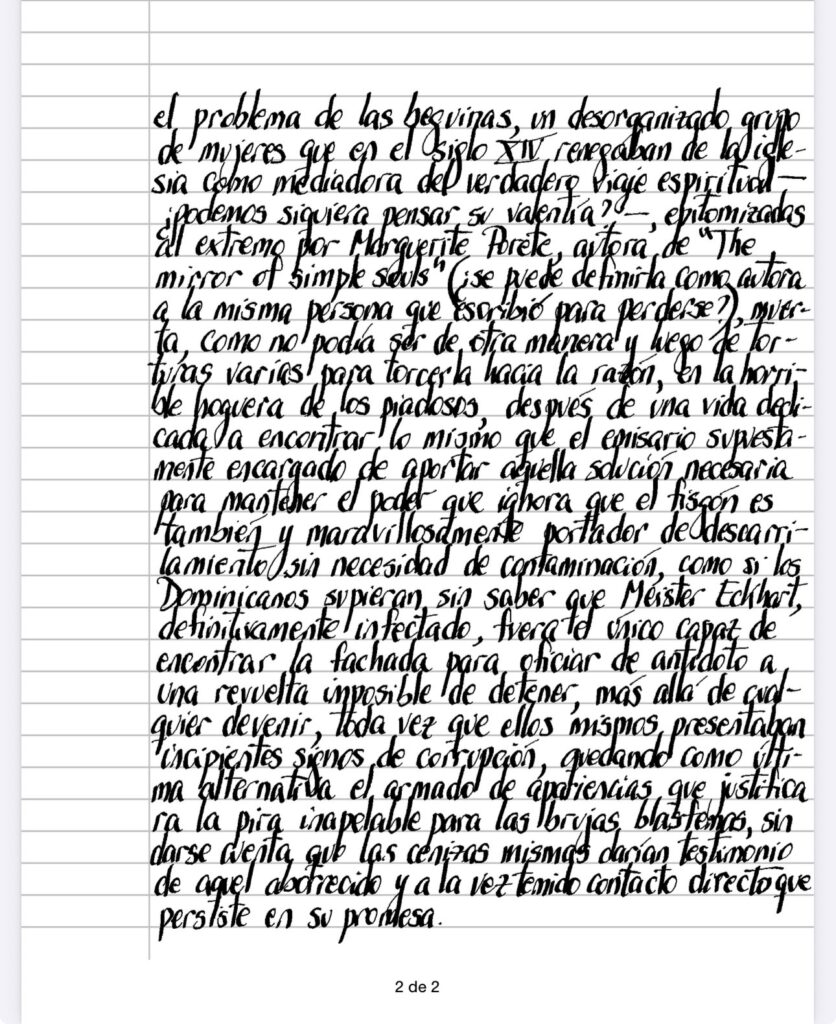 el problema de las beguinas, un desorganizado grupo
de mujeres que en el siglo XIV renegaban de la igle-
sia como mediadora del verdadero viaje espiritual —
¿podemos siquiera pensar su valentía? —, epitomizadas
al extremo por Marguerite Porete, autora de "The
mirror of simple souls" (¿se puede definirla como autora
a la misma persona que escribió para perderse?), muer-
ta, como no podía ser de otra manera y luego de tor-
turas varias para torcerla hacia la razón, en la horri-
ble hoguera de los piadosos, después de una vida dedi-
cada a encontrar lo mismo que el emisario supuesta-
mente encargado de aportar aquella solución necesaria
para mantener el poder que ignora que el fisgón es
también y maravillosamente portador de descarri-
lamiento sin necesidad de contaminación, como si los
Dominicanos supieran sin saber que Meister Eckhart,
definitivamente infectado, fuera el único capaz de
encontrar la fachada para oficiar de antídoto a
una revuelta imposible de detener, más allá de cual-
quier devenir, toda vez que ellos mismos presentaban
incipientes signos de corrupción, quedando como últi-
ma alternativa el armado de apariencias que justifica
ra la pira inapelable para las brujas blasfemas, sin
darse cuenta que las cenizas mismas darían testimonio
de aquel aborrecido y a la vez temido contacto directo que
persiste en su promesa.
2 de 2